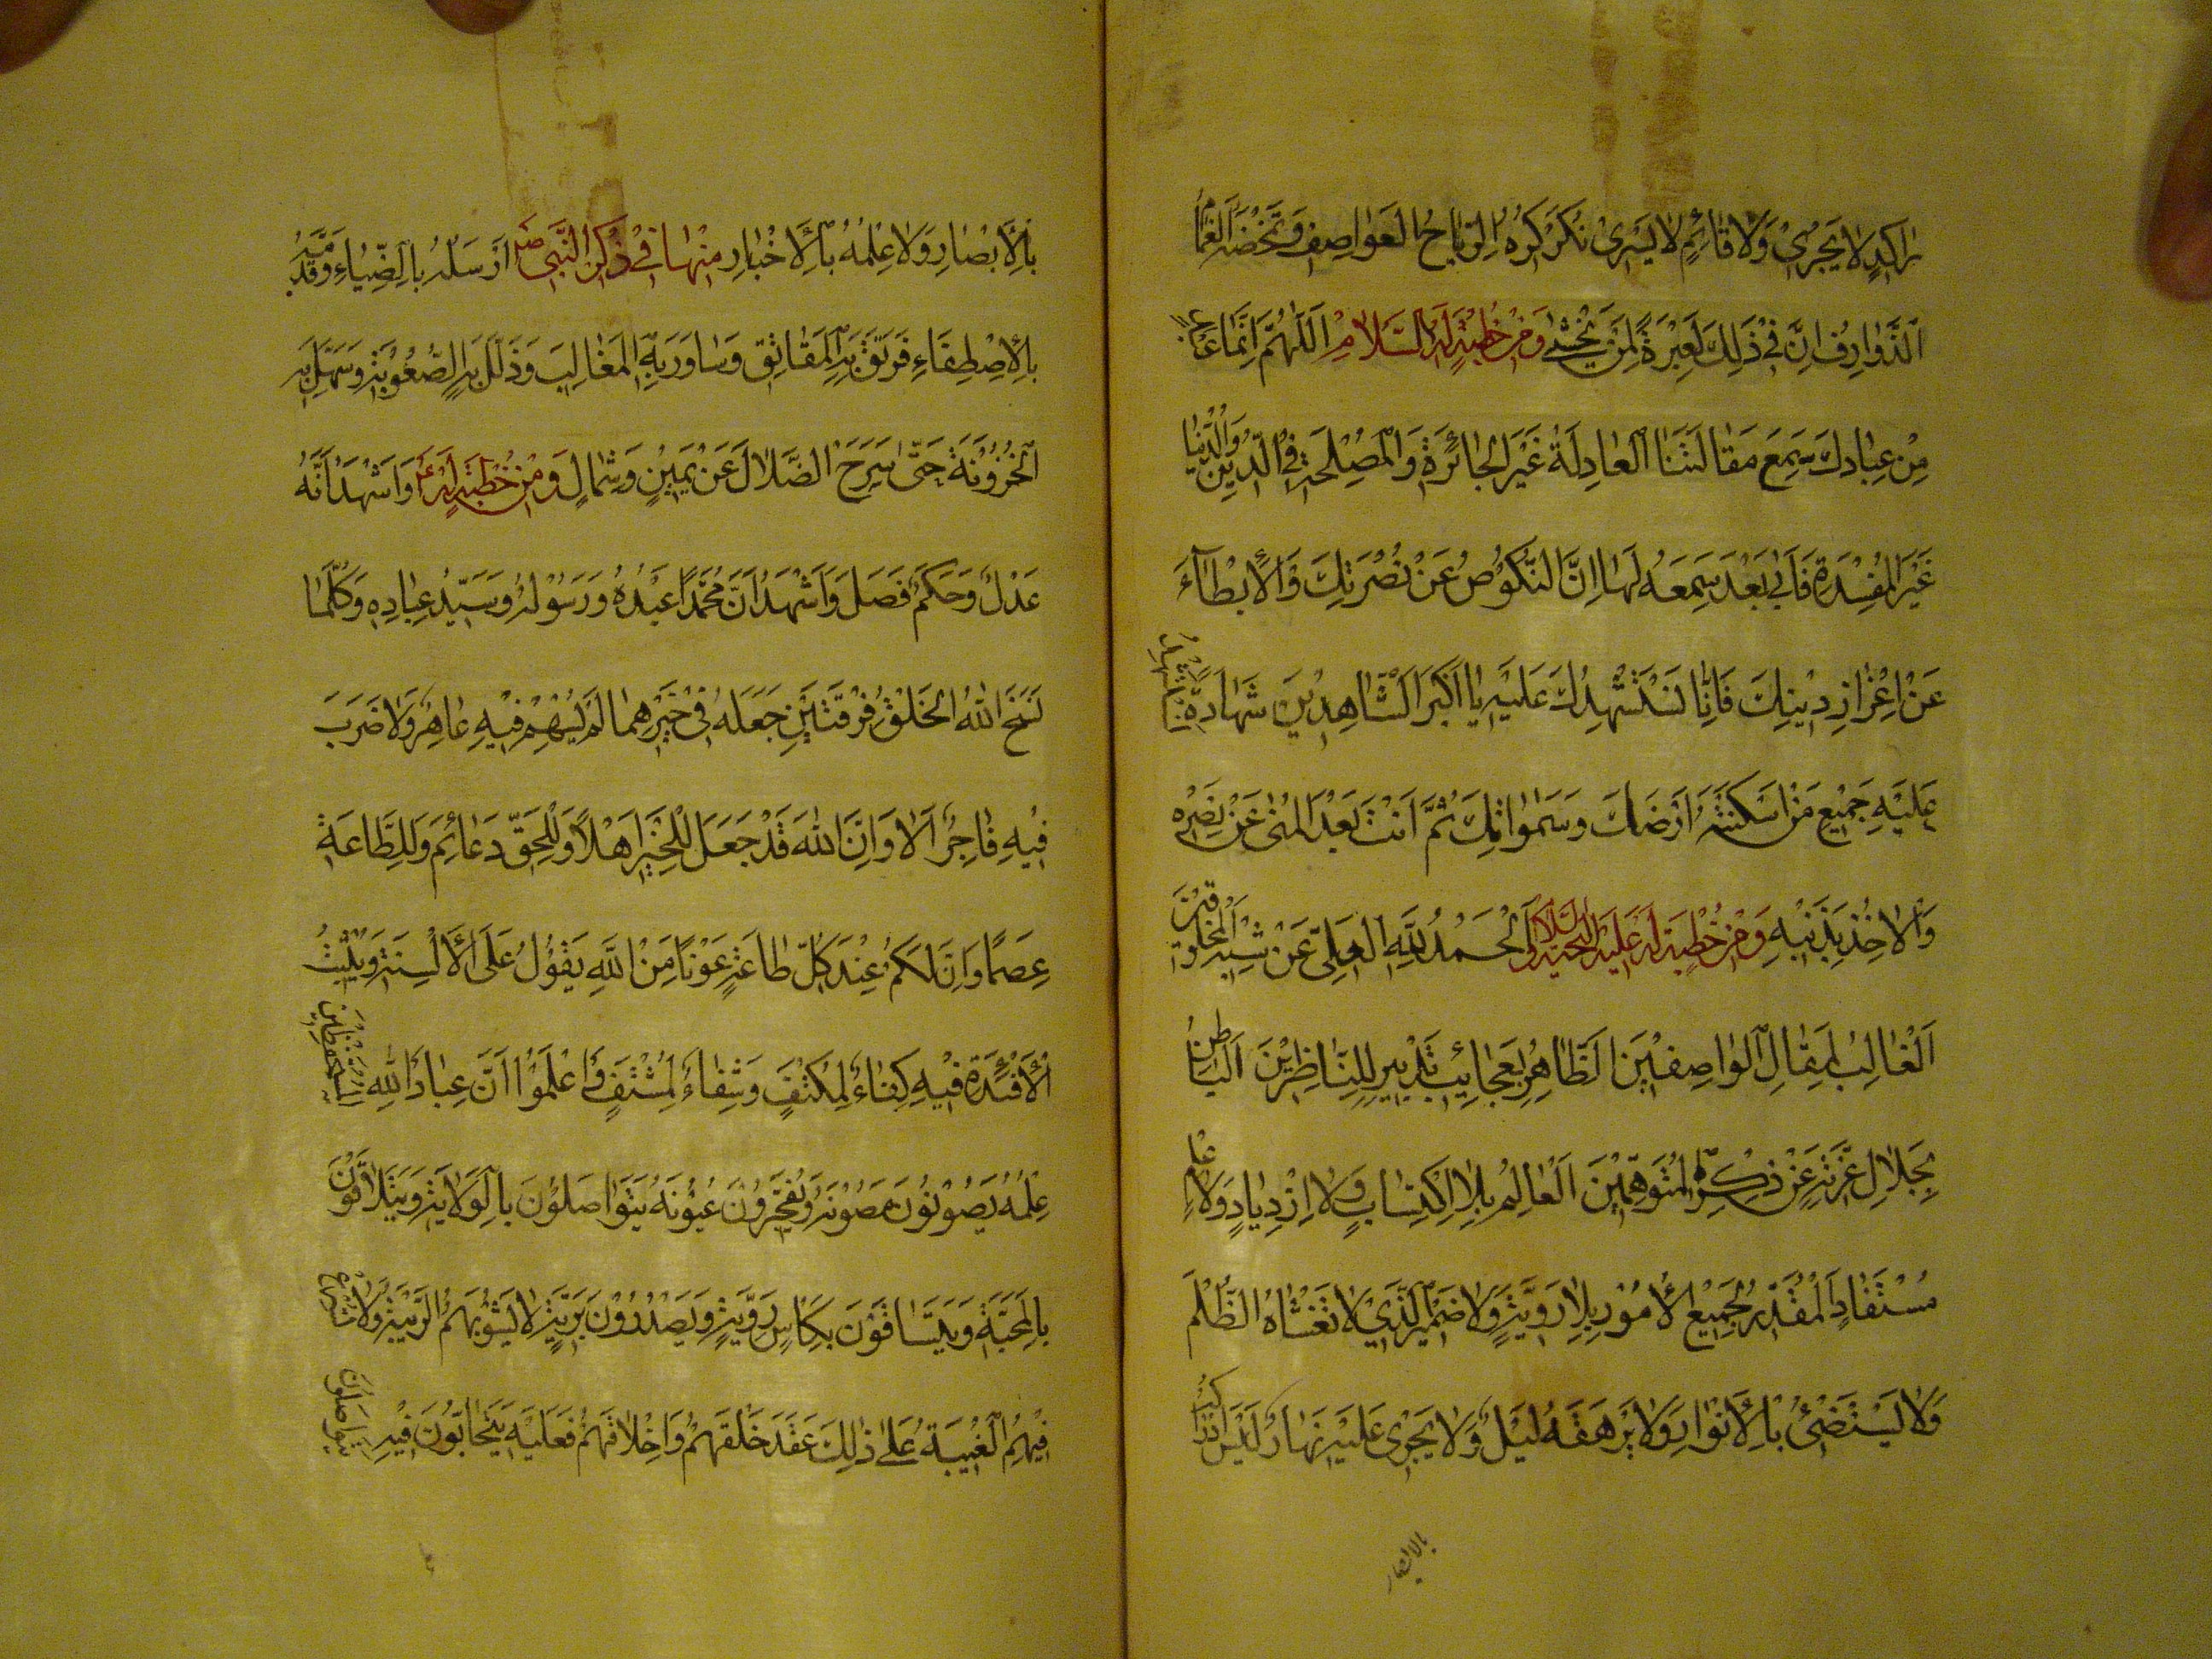 رَاكِدٍ لَا يَجْرِي وَلَا قَائِمٍ لَا يَسْرِي تُكَرْكِرُهُ الرِّيَاحُ الْعَوَاصِفُ وَتَمْخُضُهُ الْغَمَامُ
الذَّوَارِفُ اِنَّ فِي ذَلِكَ لَعِبْرَةً لِمَنْ يَخْشَى وَمِنْ خُطْبَةٍ لَهُ السَّلَامُ اَللّٰهُمَّ اَيُّمَا عَبْدٍ
مِنْ عِبَادِكَ سَمِعَ مَقَالَتَنَا الْعَادِلَةَ غَيْرَ الْجَائِرَةِ وَالْمُصْلِحَةَ فِي الدِّينِ وَالدُّنْيَا
غَيْرَ الْمُفْسِدَةِ فَاَبَى بَعْدَ سَمْعِهِ لَهَا اِلَّا النُّكُوصَ عَنْ نُصْرَتِكَ وَالْاِبْطَاءَ
عَنْ اِعْزَازِ دِينِكَ فَاِنَّا نَسْتَشْهِدُكَ عَلَيْهِ يَا اَكْبَرَ الشَّاهِدِينَ شَهَادَةً وَنَسْتَشْهِدُ
عَلَيْهِ جَمِيعَ مَنْ اَسْكَنْتَهُ اَرْضَكَ وَسَمٰوَاتِكَ ثُمَّ اَنْتَ بَعْدَ الْمُغْنِي عَنْ نَصْرِهِ
وَالْاٰخِذُ بِذَنْبِهِ وَمِنْ خُطْبَةٍ لَهُ عَلَيْهِ التَّحِيَّةُ وَالسَّلَامُ اَلْحَمْدُ لِلّٰهِ الْعَلِيِّ عَنْ شَبَهِ الْمَخْلُوقِينَ
اَلْغَالِبِ لِمَقَالِ الْوَاصِفِينَ الظَّاهِرِ بِعَجَائِبِ تَدْبِيرِهِ لِلنَّاظِرِينَ الْبَاطِنِ
بِجَلَالِ عِزَّتِهِ عَنْ فِكْرِ الْمُتَوَهِّمِينَ الْعَالِمِ بِلَا اكْتِسَابٍ وَلَا ازْدِيَادٍ وَلَا عِلْمٍ
مُسْتَفَادٍ الْمُقَدِّرِ لِجَمِيعِ الْاُمُورِ بِلَا رَوِيَّةٍ وَلَا ضَمِيرٍ الَّذِي لَا تَغْشَاهُ الظُّلَمُ
وَلَا يَسْتَضِيءُ بِالْاَنْوَارِ وَلَا يَرْهَقُهُ لَيْلٌ وَلَا يَجْرِي عَلَيْهِ نَهَارٌ لَيْسَ اِدْرَاكُهُ
بالابصار
بِالْاَبْصَارِ وَلَا عِلْمُهُ بِالْاَخْبَارِ مِنْهَا فِي ذِكْرِ النَّبِيِّ ص اَرْسَلَهُ بِالضِّيَاءِ وَقَدَّمَهُ
بِالْاِصْطِفَاءِ فَرَتَقَ بِهِ الْمَفَاتِقَ وَسَاوَرَ بِهِ الْمَغَالِبَ وَذَلَّلَ بِهِ الصُّعُوبَةَ وَسَهَّلَ بِهِ
الْحُزُونَةَ حَتَّى سَرَّحَ الضَّلَالَ عَنْ يَمِينٍ وَشِمَالٍ وَمِنْ خُطْبَةٍ لَهُ ع وَاَشْهَدُ اَنَّهُ
عَدْلٌ وَحَكَمٌ فَصَلَ وَاَشْهَدُ اَنَّ مُحَمَّدًا عَبْدُهُ وَرَسُولُهُ وَسَيِّدُ عِبَادِهِ وَكُلَّمَا
نَسَخَ اللّٰهُ الْخَلْقَ فِرْقَتَيْنِ جَعَلَهُ فِي خَيْرِهِمَا لَمْ يُسْهِمْ فِيهِ عَاهِرٌ وَلَا ضَرَبَ
فِيهِ فَاجِرٌ اَلَا وَاِنَّ اللّٰهَ قَدْ جَعَلَ لِلْخَيْرِ اَهْلًا وَلِلْحَقِّ دَعَائِمَ وَلِلطَّاعَةِ
عِصَمًا وَاِنَّ لَكُمْ عِنْدَ كُلِّ طَاعَةٍ عَوْنًا مِنَ اللّٰهِ يَقُولُ عَلَى الْاَلْسِنَةِ وَيُثَبِّتُ
الْاَفْئِدَةَ فِيهِ كِفَاءٌ لِمُكْتَفٍ وَشِفَاءٌ لِمُشْتَفٍ وَاعْلَمُوا اَنَّ عِبَادَ اللّٰهِ الْمُسْتَحْفَظِينَ
عِلْمَهُ يَصُونُونَ مَصُونَهُ وَيُفَجِّرُونَ عُيُونَهُ يَتَوَاصَلُونَ بِالْوَلَايَةِ وَيَتَلَاقَوْنَ
بِالْمَحَبَّةِ وَيَتَسَاقَوْنَ بِكَاْسٍ رَوِيَّةٍ وَيَصْدُرُونَ بِرِيَّةٍ لَا تَشُوبُهُمُ الرِّيبَةُ وَلَا تُسْرِعُ
فِيهِمُ الْغِيبَةُ عَلَى ذٰلِكَ عَقَدَ خَلْقَهُمْ وَاَخْلَاقَهُمْ فَعَلَيْهِ يَتَحَابُّونَ فِيهِ يَتَوَاصَلُونَ